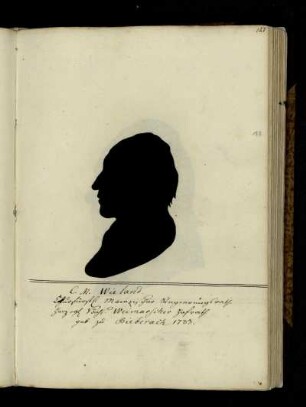 C. M. Wieland.
Churfürstl. Mainzischer Regierungsrath
Herzogl. Sächs. Weimarscher Hofrath
geb zu Bieberach 1733.